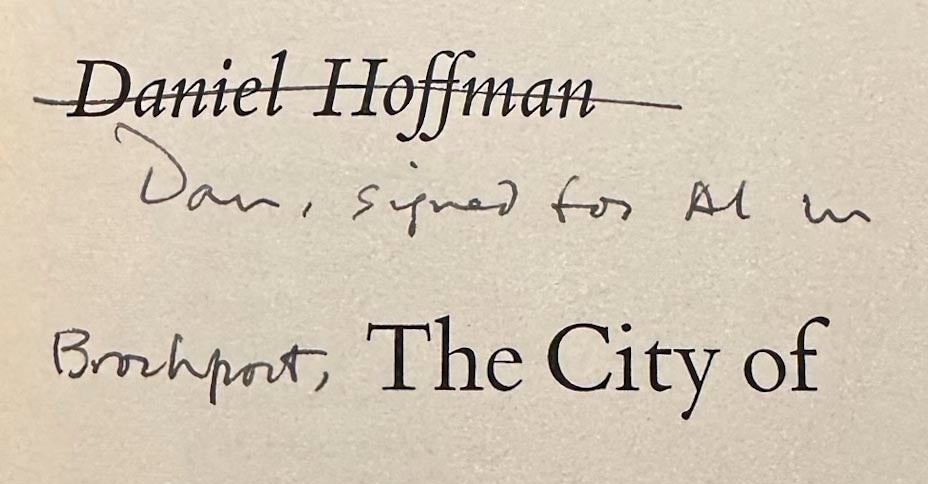 Daniel Hoffman
Dan, signed for Al in
Brockport, The City of